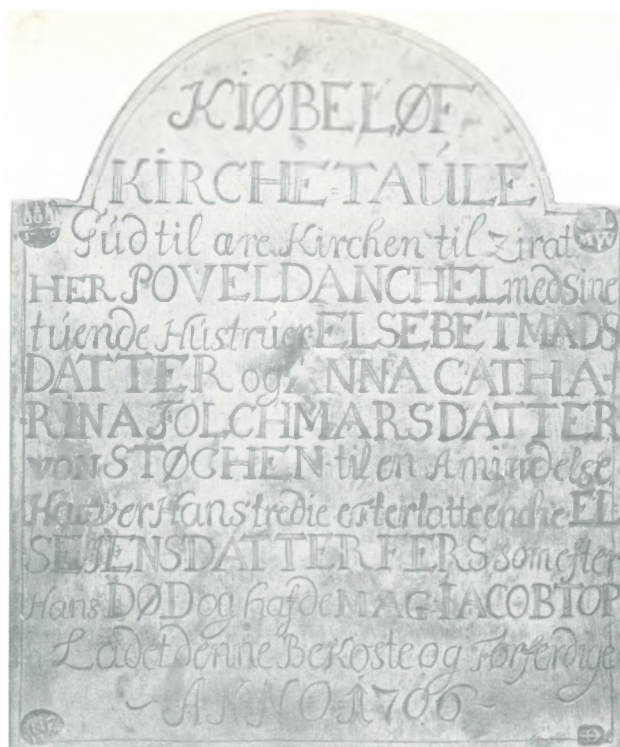 KIØBELØF
KIRCHE=TAÚLE
Gúd til ære Kirchen til Zirat
HER POVEL DANCHEL med sine
túende Hústrúer ELSEBET MADS
DATTER og ANNA CATHA-
RINA FOLCHMARSDATTER
VON STØCHEN til en Amindelse
Haver Hans tredie efterlatte enche EL
SE JENSDATTER FERS som efter
Hans DØD og hafde MAG-IACOB TOP
Ladet denne Bekoste og Forferdige
~ ANNO 1706 ~